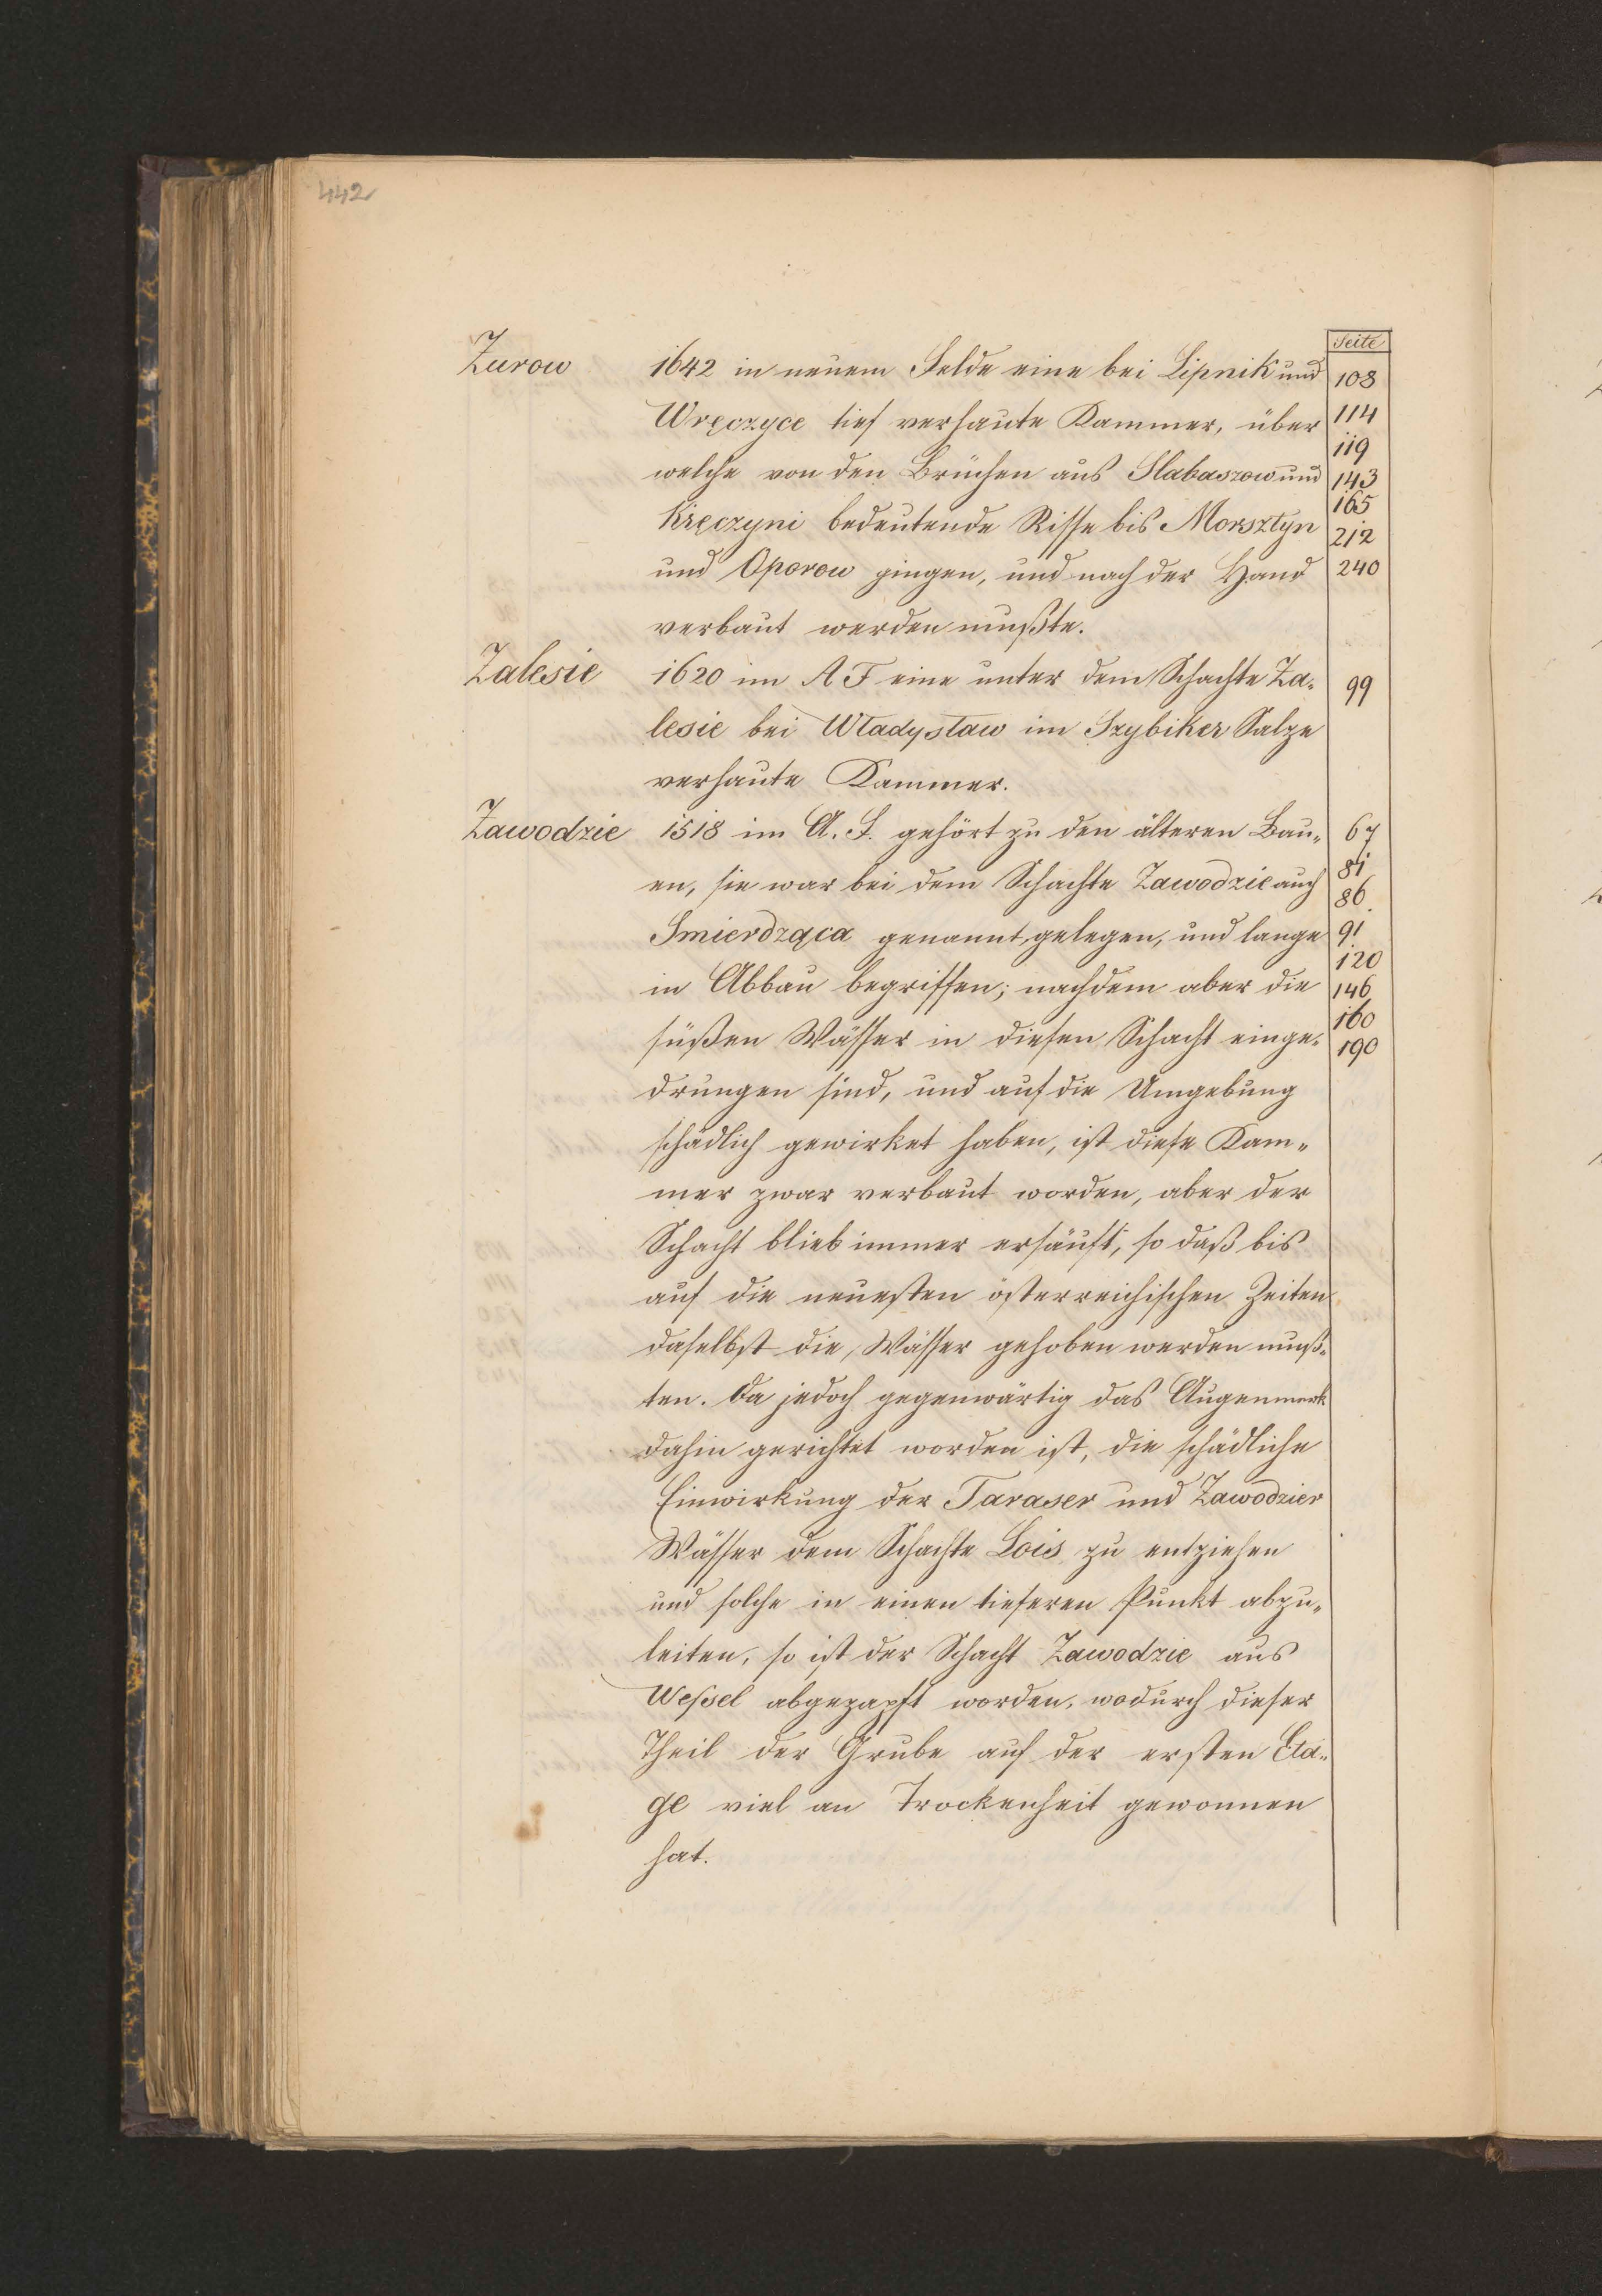 442
Seite
Zurow 1642 in neuem Felde eine bei Lipnik und 108
Wręczyce tief verhaute Kammer, über 114
119
welche von den Brüchen aus Slabaszow und 143
165
Kręczyni bedeutende Risse bis Morsztyn 212
und Oporow gingen, und nach der Hand 240
verbaut werden mußte.
Zalesie 1620 im A F eine unter dem Schachte Za- 99
lesie bei Władysław im Szybiker Salze
verhaute Kammer.
Zawodzie 1518 im A. F. gehört zu den älteren Bau- 67
81
en, sie war bei dem Schachte Zawodzie auch 86
Smierdząca genannt, gelegen, und lange 91
120
in Abbau begriffen; nachdem aber die 146
160
süßen Wässer in diesen Schacht einge- 190
drungen sind, und auf die Umgebung
schädlich gewirket haben, ist diese Kam-
mer zwar verbaut worden, aber der
Schacht blieb immer ersäuft, so daß bis
auf die neuesten österreichischen Zeiten
daselbst die Wässer gehoben werden muß-
ten. Da jedoch gegenwärtig das Augenmerk
dahin gerichtet worden ist, die schädliche
Einwirkung der Taraser und Zawodzier
Wässer dem Schachte Lois zu entziehen
und solche in einen tieferen Punkt abzu-
leiten, so ist der Schacht Zawodzie aus
Weßel abgezapft worden, wodurch dieser
Theil der Grube auf der ersten Eta-
ge viel an Trockenheit gewonnen
hat.